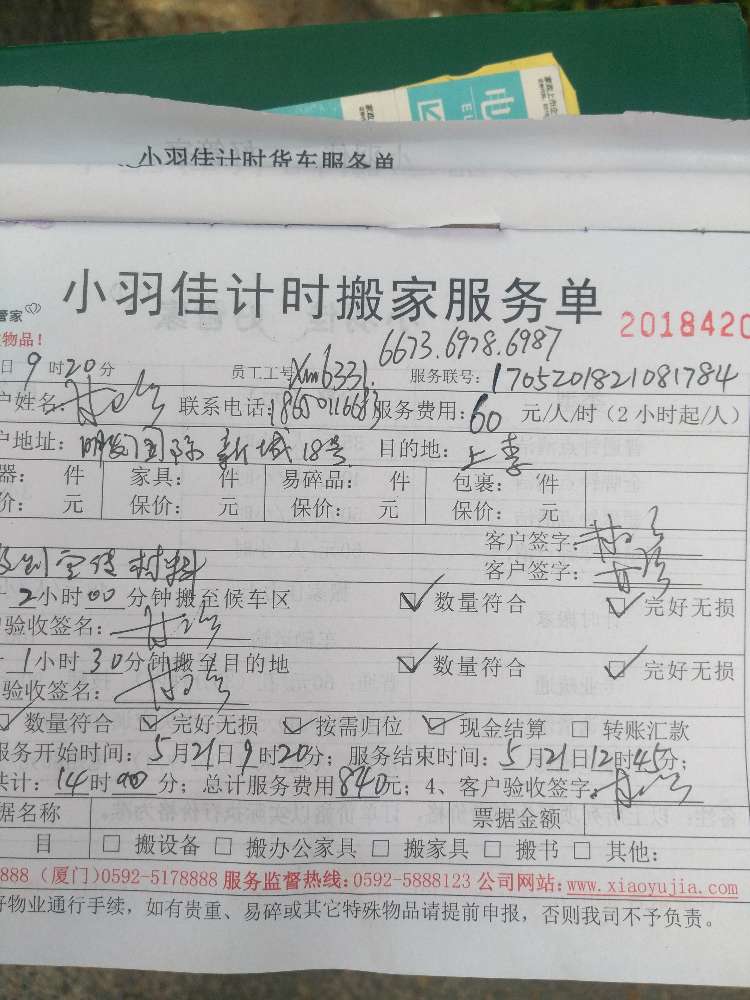 小羽佳计时货车服务单
小羽佳计时搬家服务单
管家
物品！
2018420
6673.6978.6987
日9时20分 员工工号Xm6331. 服务联号:1705201821081784
户姓名: 联系电话:18650116683 服务费用:60元/人/时（2小时起/人）
户地址:明发国际新城18号 目的地:上李
器: 件 家具: 件 易碎品: 件 包裹: 件
价: 元 保价: 元 保价: 元 保价: 元
客户签字:
宣传材料 客户签字:
2小时00分钟搬至候车区 ☑ 数量符合 ☑ 完好无损
验收签名:
1小时30分钟搬至目的地 ☑ 数量符合 ☑ 完好无损
验收签名:
☑ 数量符合 ☑ 完好无损 ☑ 按需归位 ☑ 现金结算 □ 转账汇款
服务开始时间:5月21日9时20分；服务结束时间:5月21日12时45分；
共计:14时00分；总计服务费用840元；4、客户验收签字:
据名称 票据金额
目 □ 搬设备 □ 搬办公家具 □ 搬家具 □ 搬书 □ 其他:
888（厦门）0592-5178888 服务监督热线:0592-5888123 公司网站:www.xiaoyujia.com
好物业通行手续，如有贵重、易碎或其它特殊物品请提前申报，否则我司不予负责。